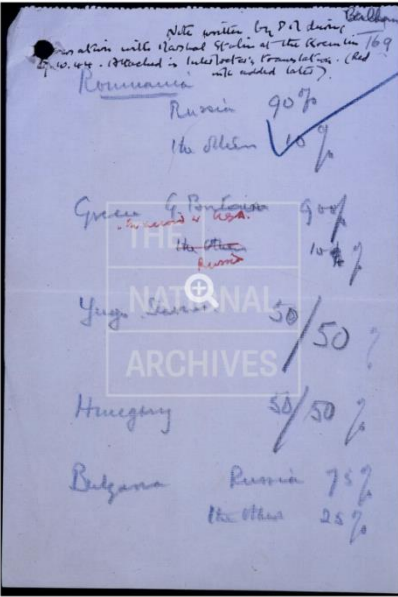 169
Note written by P.M during
versation with Marshal Stalin at the Kremlin
10.44. Attached is Interpreter's translation. (Red
ink added later).
Roumania
Russia 90%
the others 10%
Greece G Britain 90%
in accord w U.S.A.
the others 10%
Russia
Yugo Slavia 50/50 %
Hungary 50/50 %
Bulgaria Russia 75%
the others 25%
THE
NATIONAL
ARCHIVES